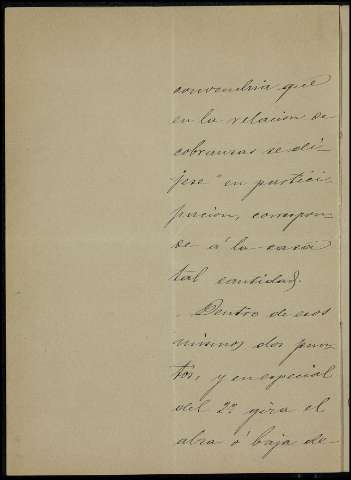 convendria que
en la relacion de
cobranzas se di-
jese "en partici-
pacion, correspon-
de á la casa
tal cantidad.
Dentro de esos
mismos dos pun-
tos, y en especial
del 2º gira el
alza ó baja de-